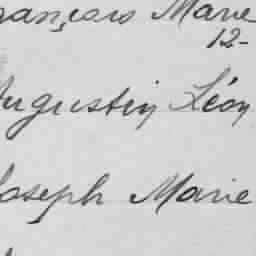 François Marie
12-
Augustin Léon
Joseph Marie